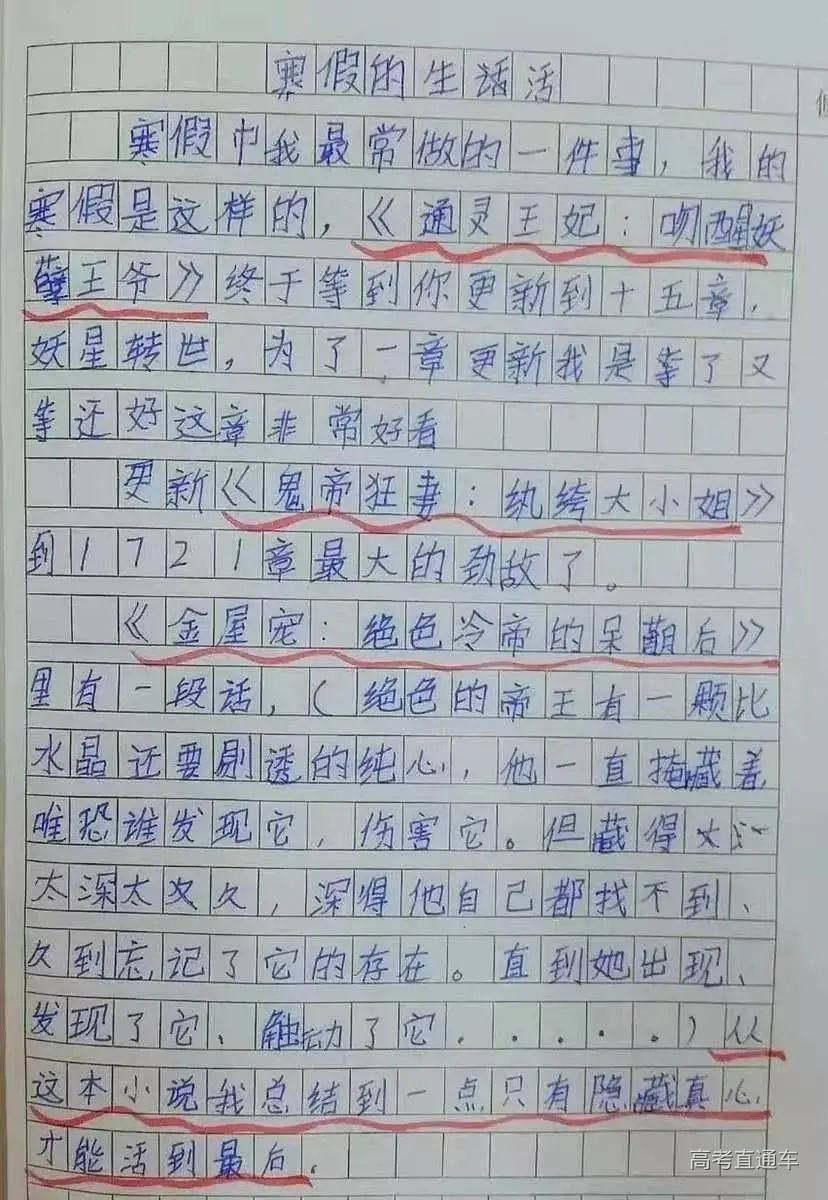 寒假的生活活
寒假中我最常做的一件事，我的
寒假是这样的，《通灵王妃：吻醒妖
孽王爷》终于等到你更新到十五章，
妖星转世，为了一章更新我是等了又
等还好这章非常好看
更新《鬼帝狂妻：纨绔大小姐》
到1721章最大的劲敌了。
《金屋宠：绝色冷帝的呆萌后》
里有一段话，（绝色的帝王有一颗比
水晶还要剔透的纯心，他一直掩藏着
唯恐谁发现它，伤害它。但藏得太
太深太久久，深得他自己都找不到、
久到忘记了它的存在。直到她出现、
发现了它、触动了它．．．．．）从
这本小说我总结到一点只有隐藏真心
才能活到最后．
高考直通车